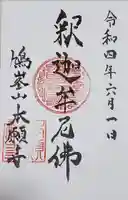 令和四年六月一日
釈迦牟尼佛
鳩峯山大願寺